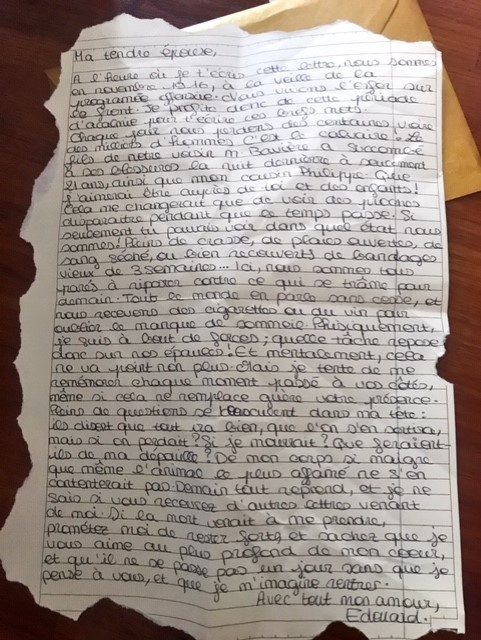 Ma tendre épouse,
A l'heure où je t'écris cette lettre, nous sommes
en novembre 1916, à la veille de la
programée offensive. Nous vivons l'enfer sur
le front. Je profite donc de cette période
d'acalmie pour t'écrire ces longs mots.
Chaque jour nous perdons des centaines voire
des milliers d'hommes c'est le calvaire. Le
fils de notre voisin M. Bavière a succombé
à ses blessures la nuit dernière à seulement
21 ans, ainsi que mon cousin Philippe. Que
j'aimerai être auprès de toi et des enfants!
Cela me changerait que de voir des proches
disparaitre pendant que le temps passe. Si
seulement tu pouvais voir dans quel état nous
sommes! Pleins de crasse, de plaies ouvertes, de
sang séché, ou bien recouverts de bandages
vieux de 3 semaines... Ici, nous sommes tous
parés à riposter contre ce qui se trâme pour
demain. Tout le monde en parle sans cesse, et
nous recevons des cigarettes ou du vin pour
oublier le manque de sommeil. Phisiquement,
je suis à bout de forces; quelle tâche repose
donc sur nos épaules! Et mentalement, cela
ne va point non plus. Mais je tente de me
remémorer chaque moment passé à vos côtés,
même si cela ne remplace guère votre présence.
Pleins de questions se bousculent dans ma tête:
ils disent que tout ira bien, que l'on s'en sortira,
mais si on perdait? Si je mourrait? Que feraient-
ils de ma dépouille? De mon corps si maigre
que même l'animal le plus affamé ne s'en
contenterait pas. Demain tout reprend, et je ne
sais si vous recevrez d'autres lettres venant
de moi. Si la mort venait à me prendre,
prométez moi de rester forts, et sachez que je
vous aime au plus profond de mon coeur,
et qu'il ne se passe pas un jour sans que je
pense à vous, et que je m'imagine rentrer.
Avec tout mon amour,
Edouard.